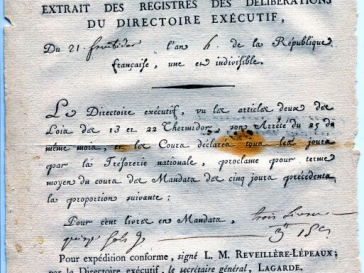 EXTRAIT DES REGISTRES DES DÉLIBÉRATIONS
DU DIRECTOIRE EXÉCUTIF,
Du 21 fructidor l'an 6 de la République
française, une et indivisible.
Le Directoire exécutif, vu les articles deux des
Loix des 13 et 22 Thermidor, son Arrêté du 25 du
même mois, et les Cours déclarés tous les jours
par la Trésorerie nationale, proclame pour terme
moyen du cours des Mandats des cinq jours précédents
la proportion suivante :
Pour cent livres en Mandats, trois livres
Pour expédition conforme, signé L. M. REVEILLÈRE-LÉPEAUX;
par le Directoire exécutif, le secrétaire général, LAGARDE.